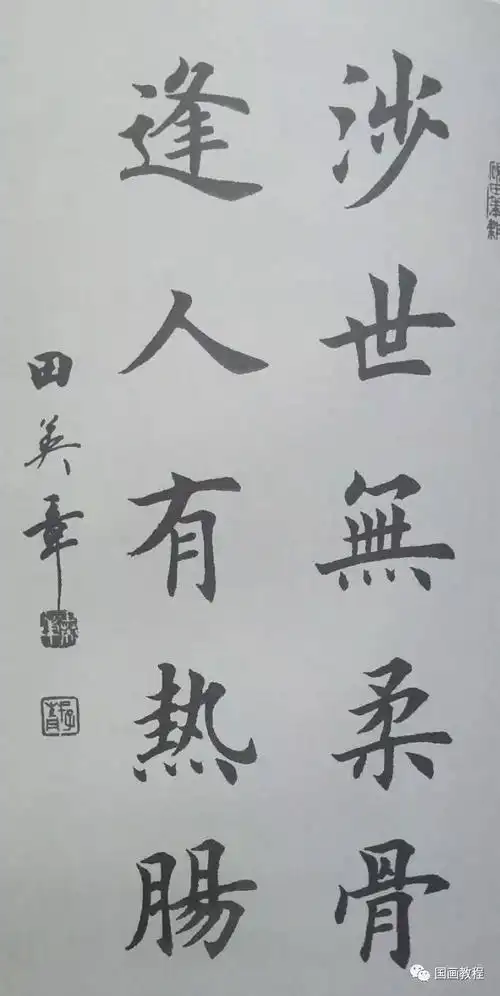 涉世無柔骨
逢人有熱腸
田英章
国画教程